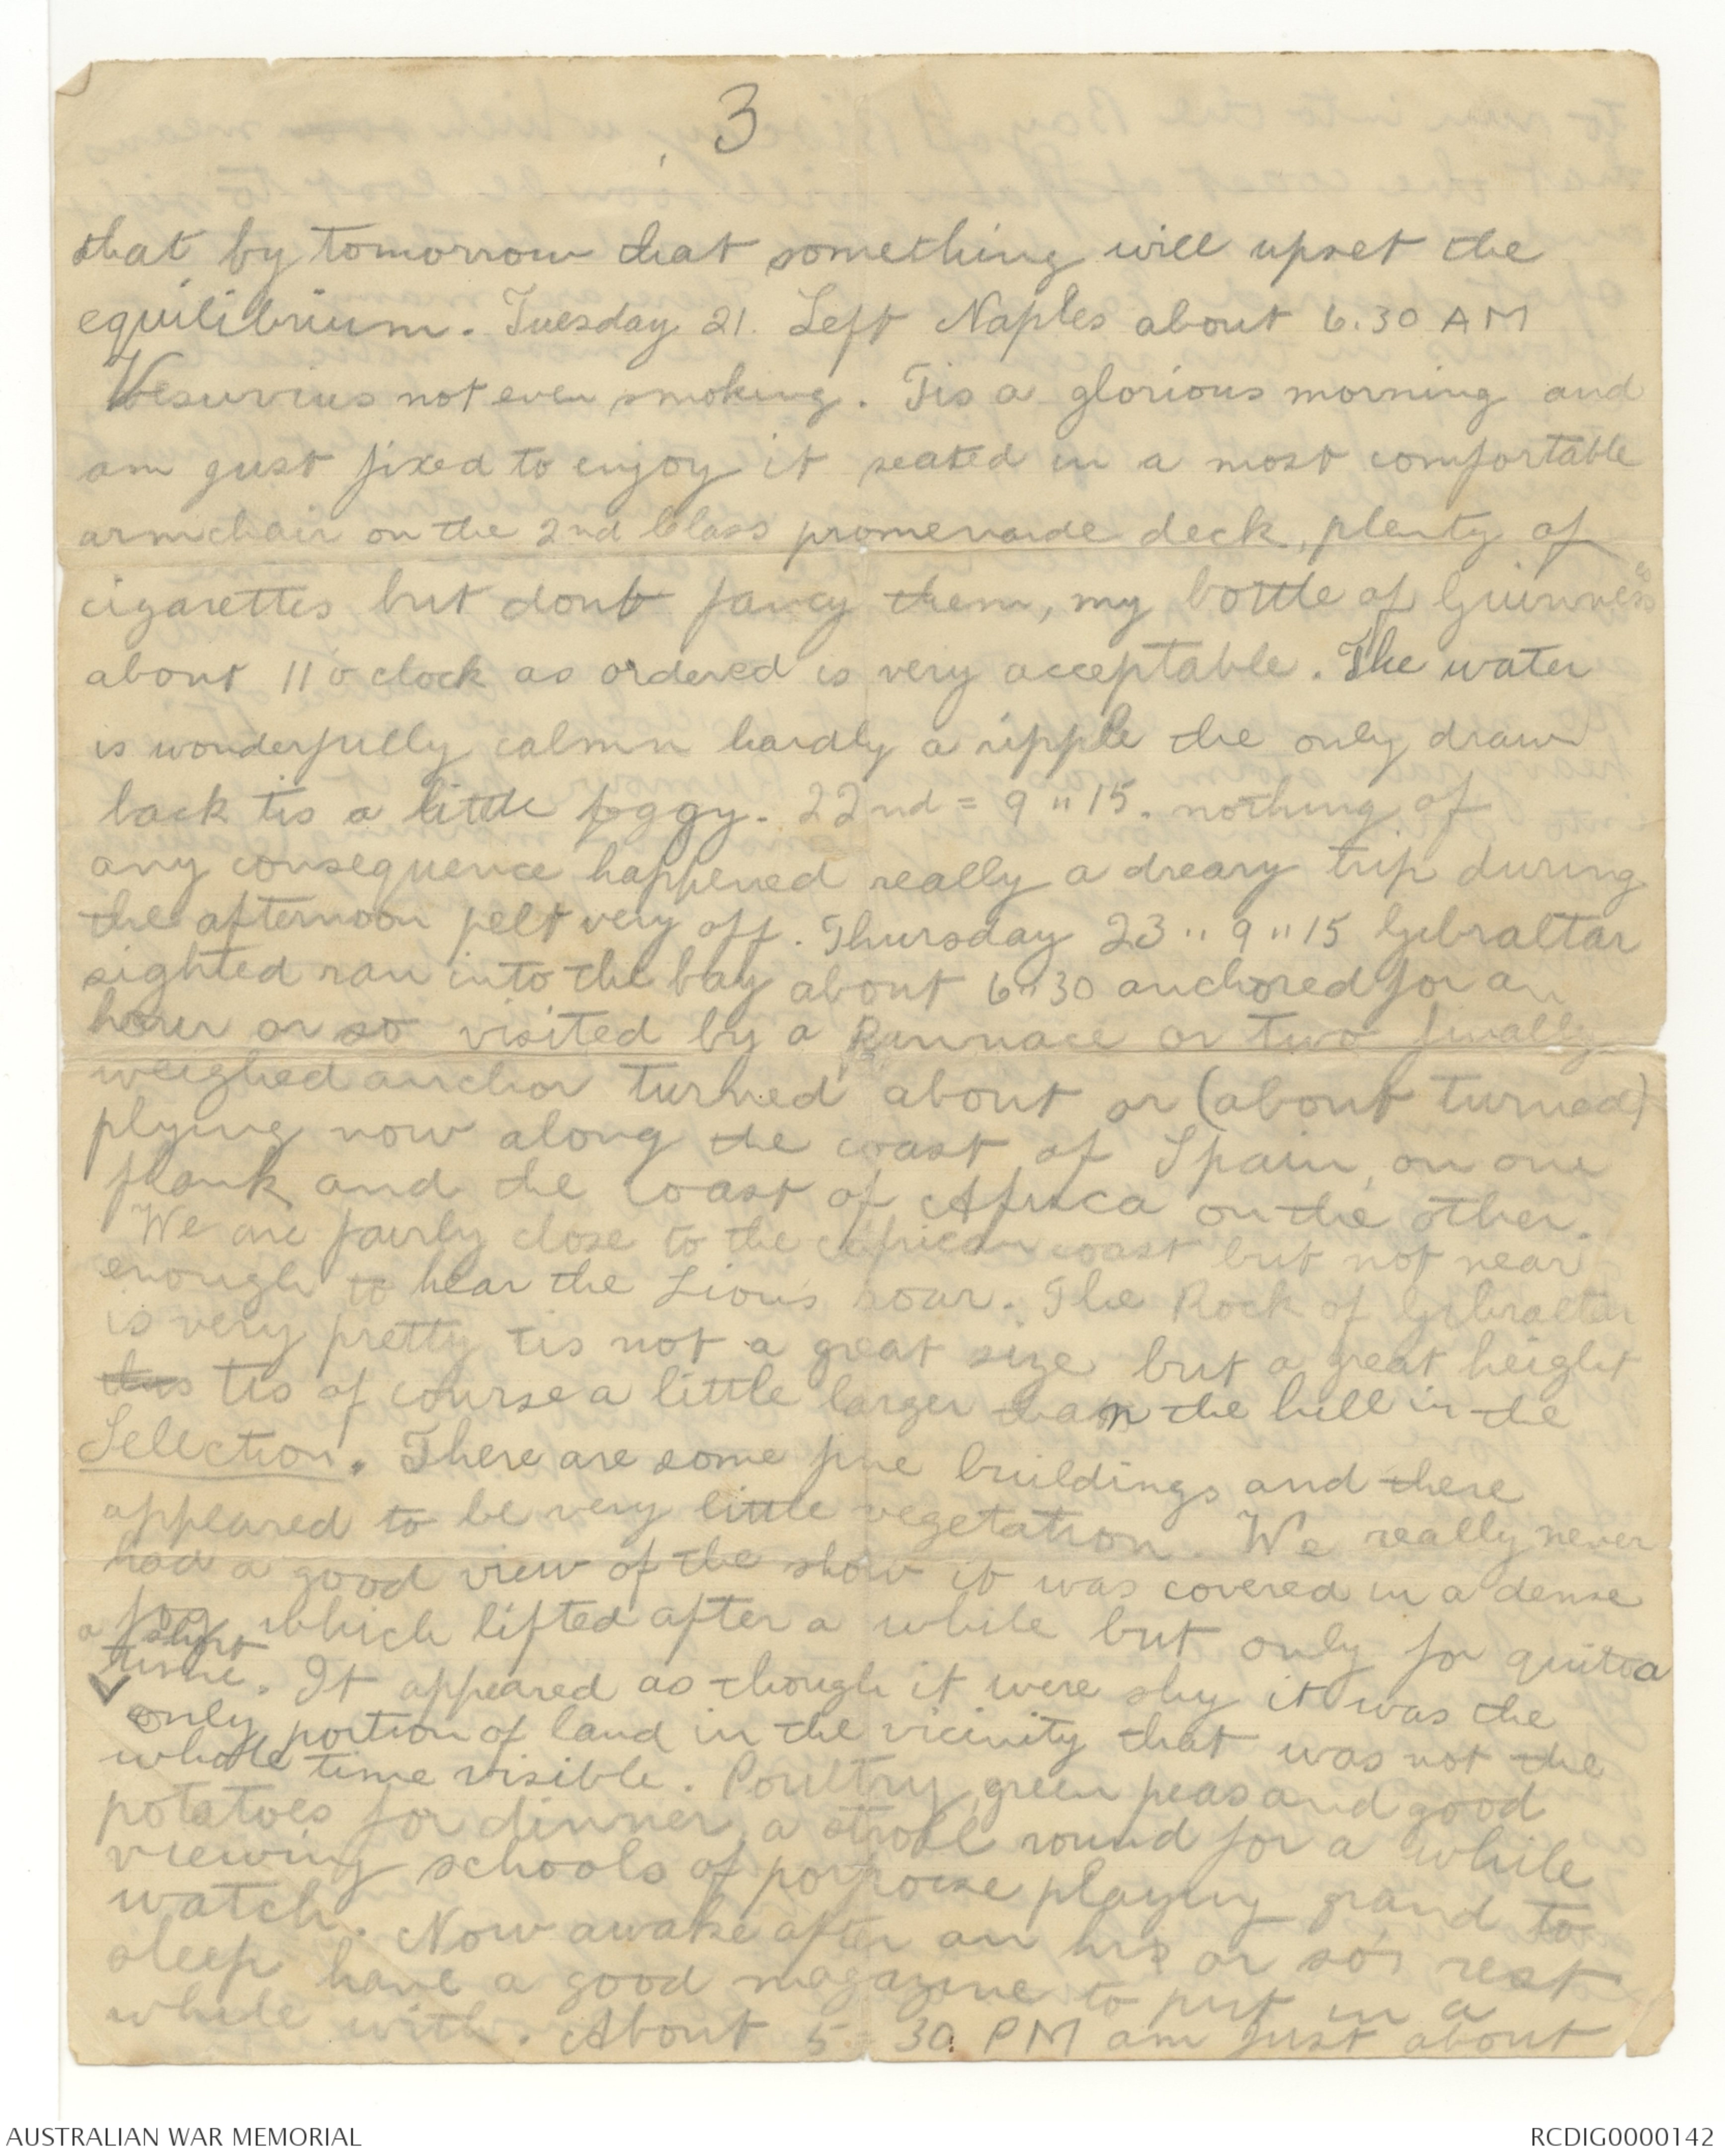 3
that by tomorrow that something will upset the
equilibrium. Tuesday 21. Left Naples about 6.30 AM
Vesuvius not even smoking. Tis a glorious morning and
am just fixed to enjoy it seated in a most comfortable
armchair on the 2nd Class promenade deck, plenty of
cigarettes but dont fancy them, my bottle of Guinness
about 11 o'clock as ordered is very acceptable. The water
is wonderfully calmn hardly a ripple the only draw
back tis a little foggy. 22nd = 9 " 15. nothing of
any consequence happened really a dreary trip during
the afternoon felt very off. Thursday 23 " 9 " 15 Gibraltar
sighted ran into the bay about 6"30 anchored for an
hour or so visited by a Punnace or two finally
weighed anchor turned about or (about turned)
plying now along the coast of Spain, on one
flank and the coast of Africa on the other.
We are fairly close to the African coast but not near
enough to hear the Lions roar. The Rock of Gibraltar
is very pretty tis not a great size but a great height
this tis of course a little larger than the hill in the
Selection. There are some fine buildings and there
appeared to be very little vegetation. We really never
had a good view of the show it was covered in a dense
fog which lifted after a while but only for quite a
a short
time. It appeared as though it were shy it was the
only portion of land in the vicinity that was not the
whole time visible. Poultry, green peas and good
potatoes for dinner, a stroll round for a while
viewing schools of porpoise playing grand to
watch. Now awake after an hrs or so's rest
sleep have a good magazine to put in a
while with. About 5 = 30. PM am just about
AUSTRALIAN WAR MEMORIAL
RCDIG0000142